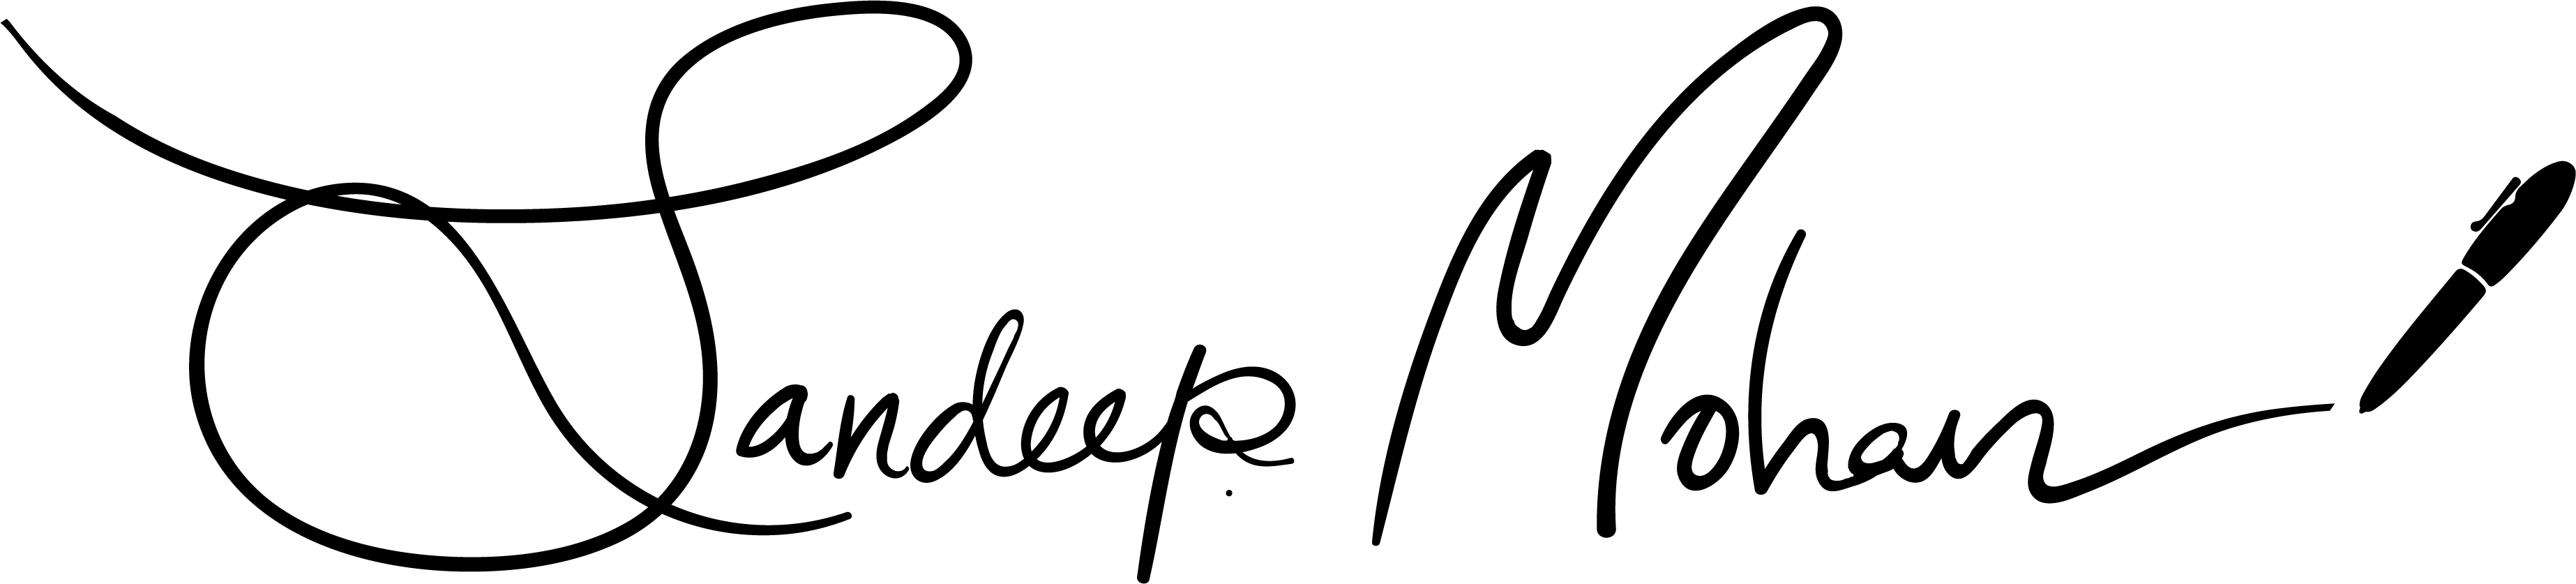 Sandeep Mohan